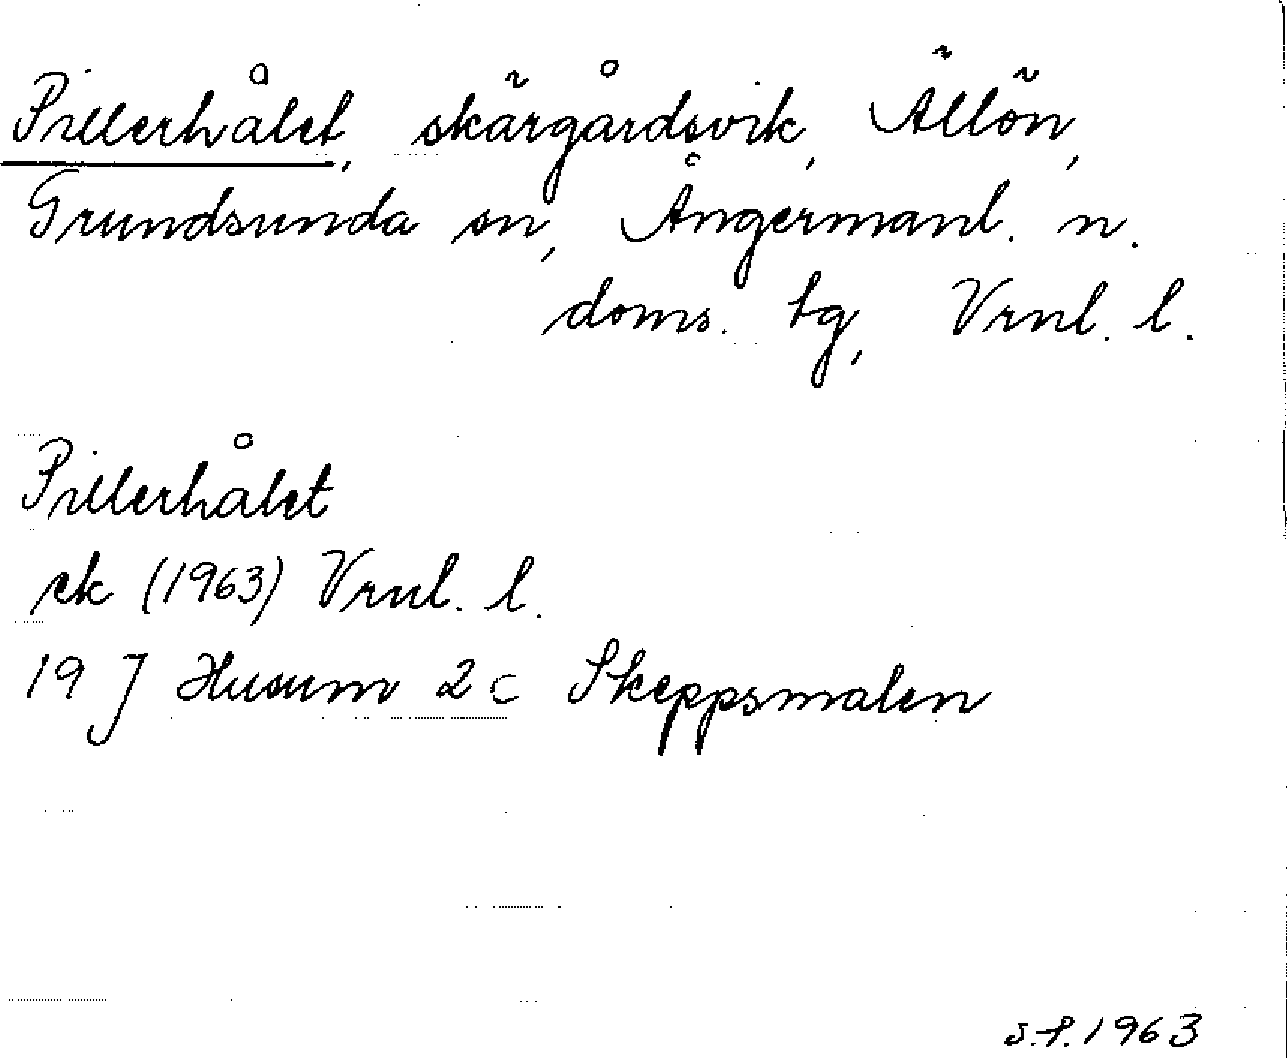 Pillerhålet, skärgårdsvik, Ällön,
Grundsunda sn, Ångermanl. n.
doms. tg, Vrnl. l.
Pillerhålet
ek (1963) Vrnl. l.
19 J Husum 2 c Skeppsmalen
1963